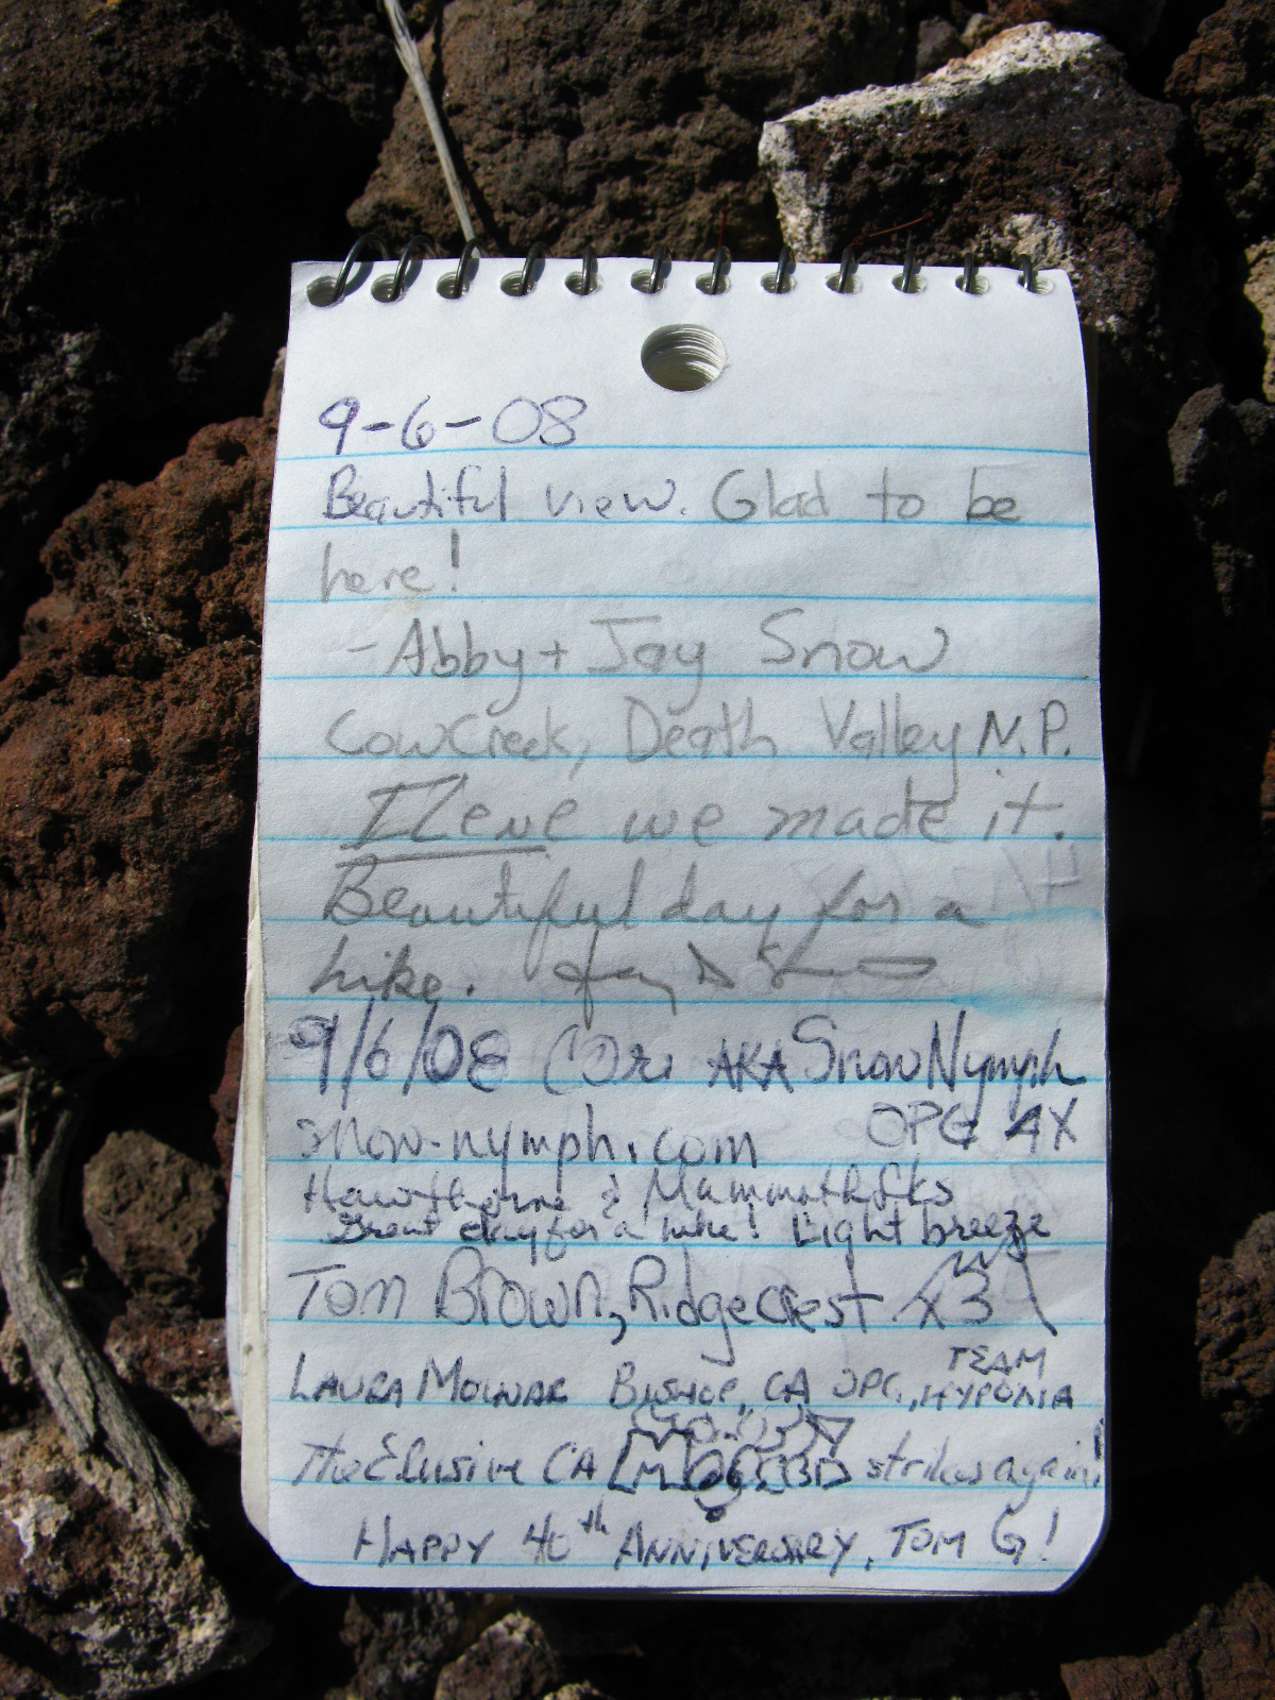 9-6-08
Beautiful view. Glad to be
here!
- Abby + Jay Snow
Cow Creek, Death Valley N.P.
ILene we made it.
Beautiful day for a
hike.
9/6/08 Cori AKA Snow Nymph
snow-nymph.com OPG 4X
Hawthorne & Mammoth Lks
Great day for a hike! Light breeze
Tom Brown, Ridgecrest x3
TEAM
LAURA MOLNAR BISHOP, CA OPG, HYPOXIA
The Elusive CA strikes again!
HAPPY 40th ANNIVERSARY, TOM G!